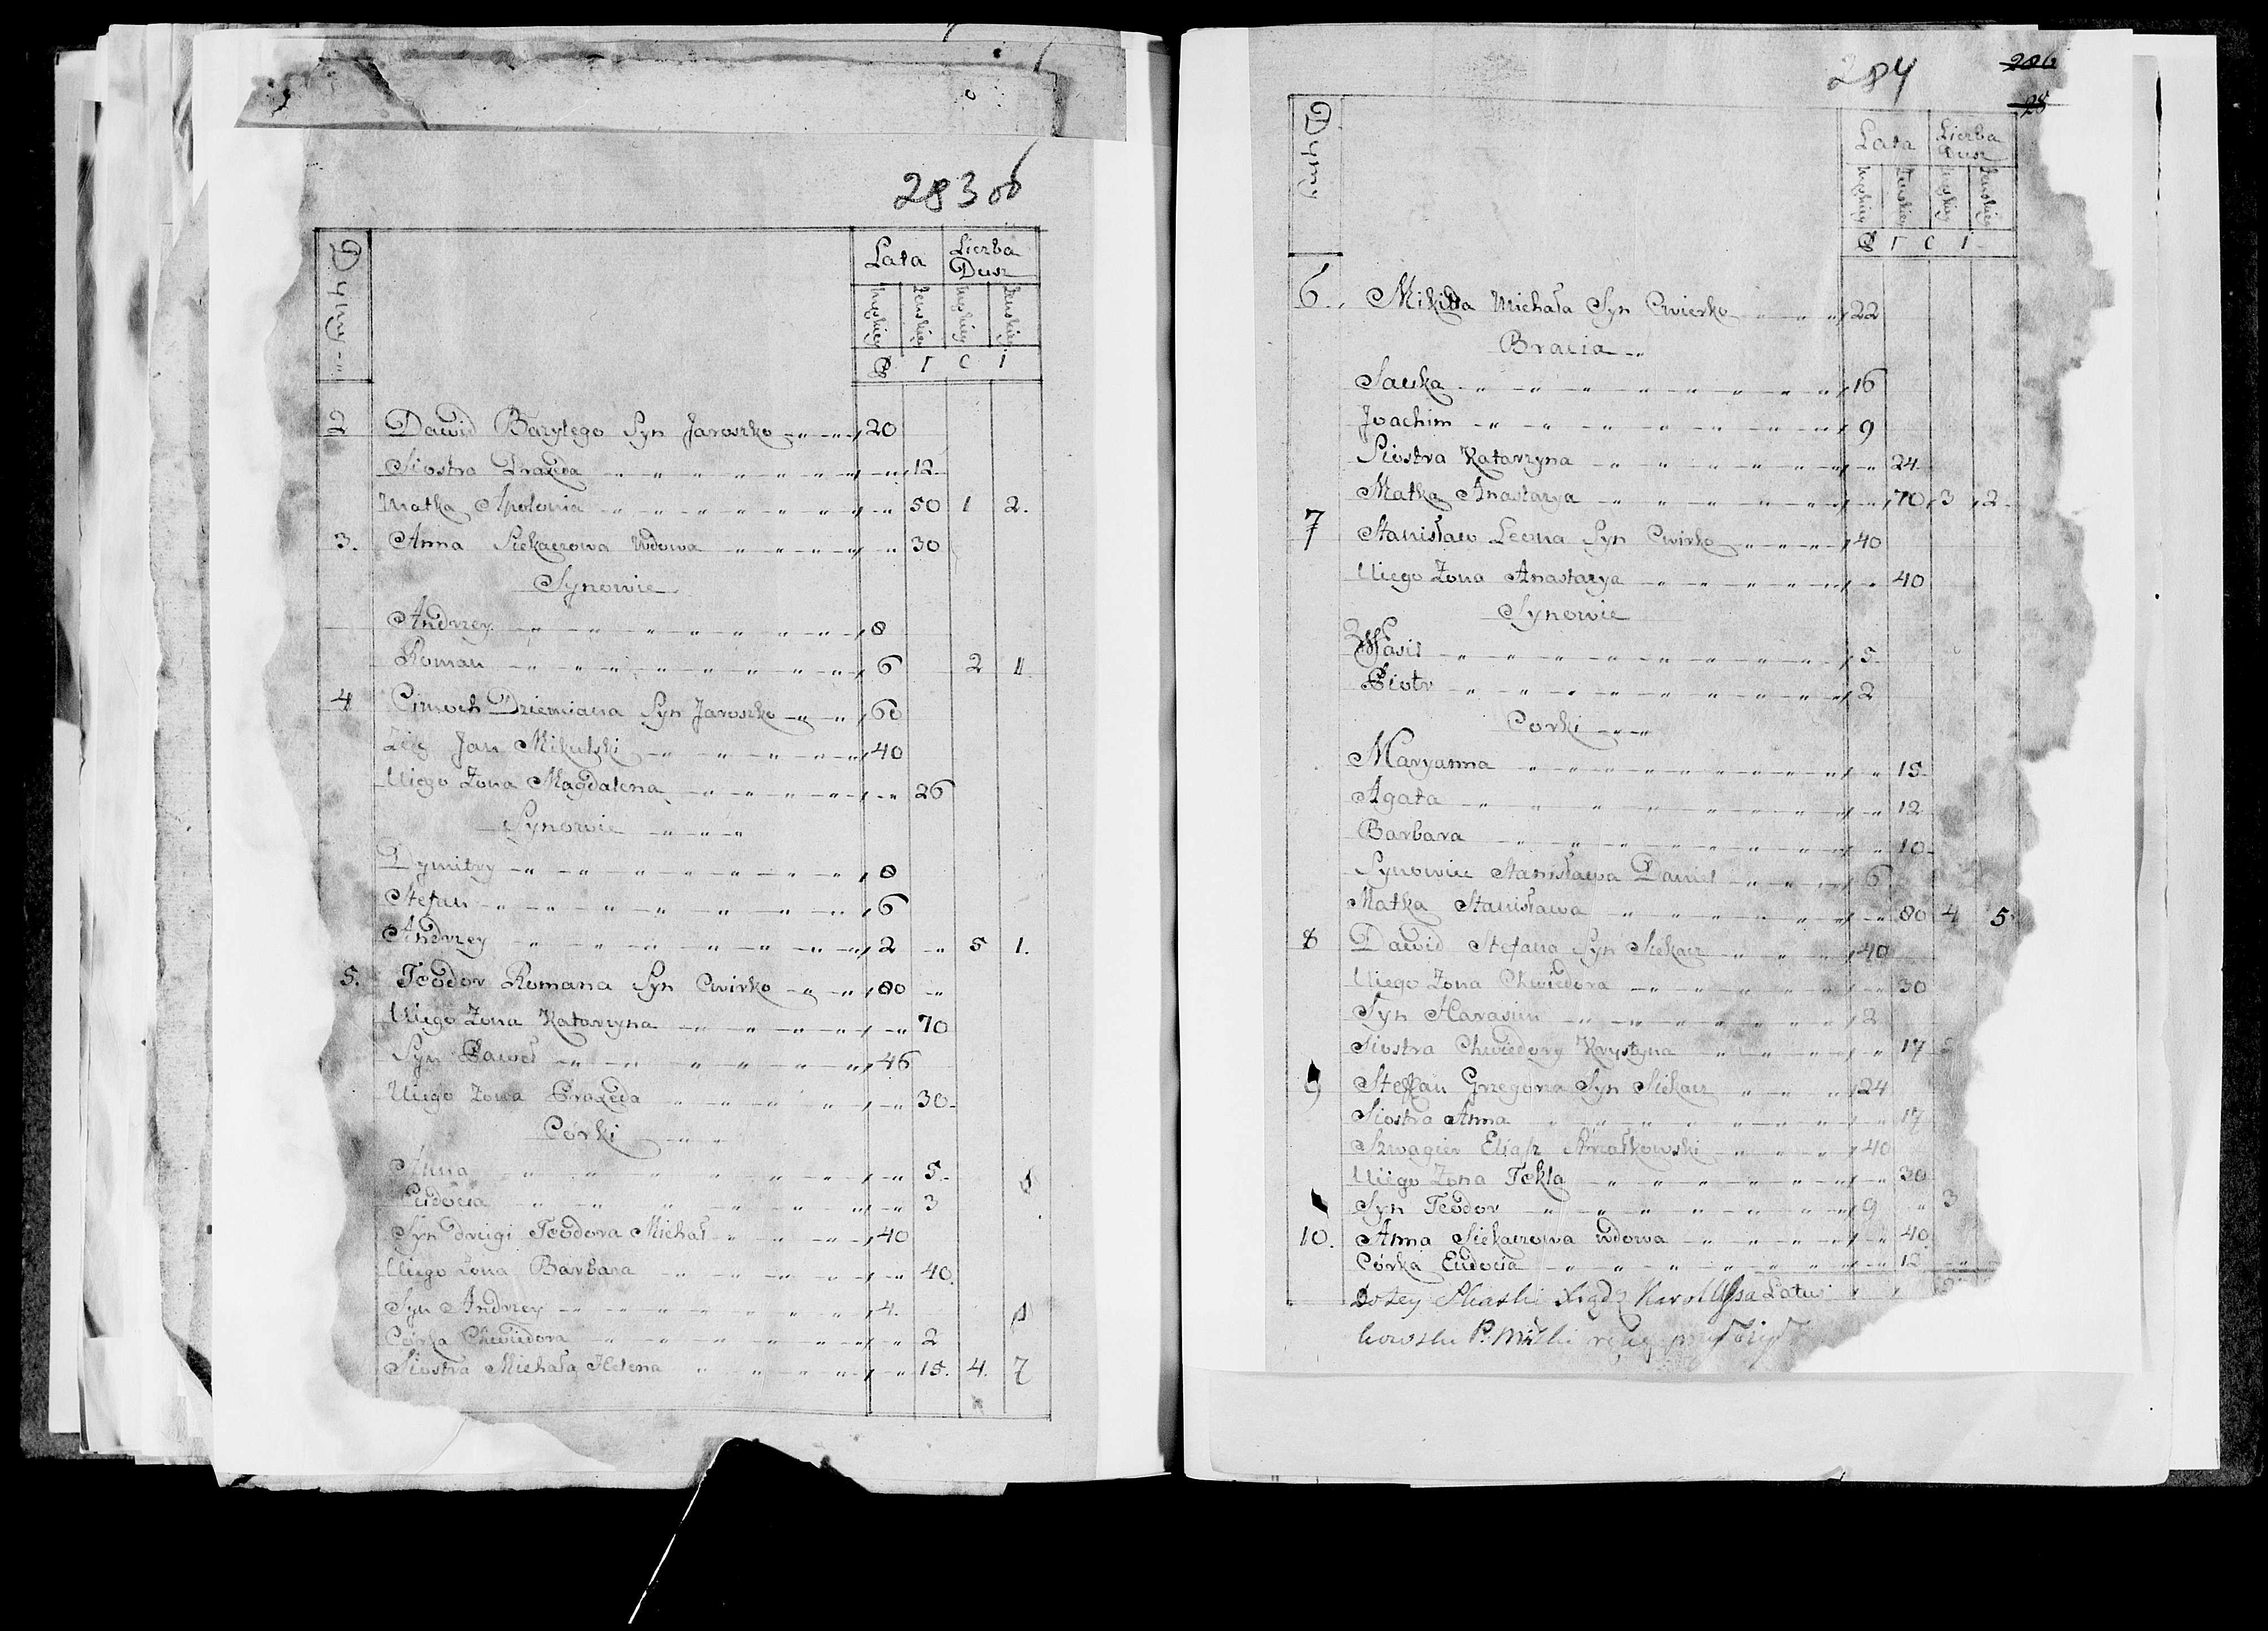 283 об
Dymy
Lata Liczba Dusz
Męskiey Żeńskiey Męskiey Żeńskiey
2 Dawid Bazylego Syn Jaroszko 20
Siostra Praxeda 12
Matka Apolonia 50 1 2.
3. Anna Siekaczowa Wdowa 30
Synowie
Andrzey 8
Roman 6 2 1
4 Cimoch Dziemiana Syn Jaroszko 60
Zięć Jan Mikulski 40
Uiego Żona Magdalena 26
Synowie
Dymitry 8
Stefan 6
Andrzey 2 5 1.
5. Teodor Romana Syn Cwirko 80
Uiego Żona Katarzyna 70
Syn Paweł 46
Uiego Żona Praxeda 30
Córki
Anna 5
Eudocia 3
Syn drugi Teodora Michał 40
Uiego Żona Barbara 40.
Syn Andrzey 4.
Córka Chwiedora 2
Siostra Michała Helena 15. 4. 7
284
206
28
Dymy
Lata Liczba Dusz
Męskiey Żeńskiey Męskiey Żeńskiey
6. Mikita Michała Syn Cwierko 22
Bracia
Sawka 16
Joachim 9
Siostra Katarzyna 24
Matka Anastazya 70 3 2
7 Stanisław Leona Syn Cwirko 40
Uiego Żona Anastazya 40
Synowie
Wasil 5
Piotr 2
Corki
Maryanna 15
Agata 12
Barbara 10
Synowiec Stanisława Daniel 6
Matka Stanisława 80 4 5
8 Dawid Stefana Syn Siekacz 40
Uiego Żona Chwiedora 30
Syn Harasim 2
Siostra Chwiedory Krystyna 17 2
9 Stefan Grzegorza Syn Siekacz 24
Siostra Anna 17
Szwagier Eliasz 40
Uiego Żona Tekla 30
Syn Teodor 9 3
10. Anna Siekaczowa wdowa 40
Córka Eudocia 12
Latus